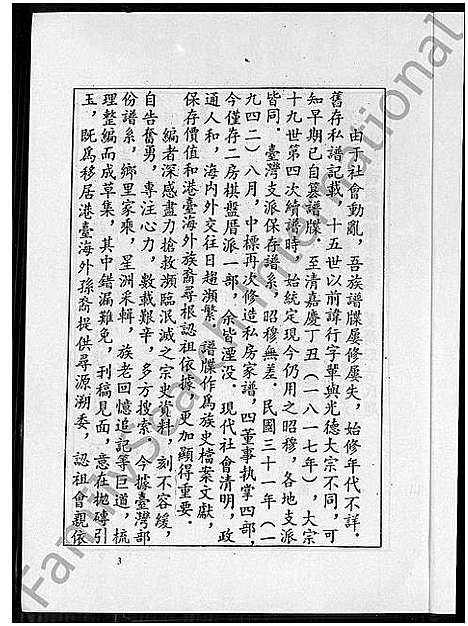 由于社會動亂，吾族譜牒屢修屢失，始修年代不詳。
舊存私譜記載，十五世以前諱行字輩與光德大宗不同，可
知早期已自篡譜牒。至清嘉慶丁丑（一八一七年），大宗
十九世第四次續譜時，始統定現今仍用之昭穆，各地支派
皆同。臺灣支派保存譜系，昭穆無差。民國三十一年（一
九四二）八月，中標再次修造私房家譜，四董事執掌四部，
今僅存二房棋盤厝派一部，余皆湮没。現代社會清明，政
通人和，海内外交往日趨瀕繁。譜牒作爲族史檔案文獻，
保存價值和港臺海外族裔尋根認祖依據，更加顯得重要。
編者深感盡力搶救瀕臨泯滅之宗史資料，刻不容緩，
自告奮勇，專注心力，數載艱辛，多方搜索。今據臺灣部
份譜系，鄉里家乘，星洲采輯，族老回憶追記等巨道，梳
理整編而成草集，其中錯漏難免，刊稿見面，意在抛磚引
玉，既爲移居港臺海外孫裔提供尋源溯委，認祖會親依
3
FamilySearch International